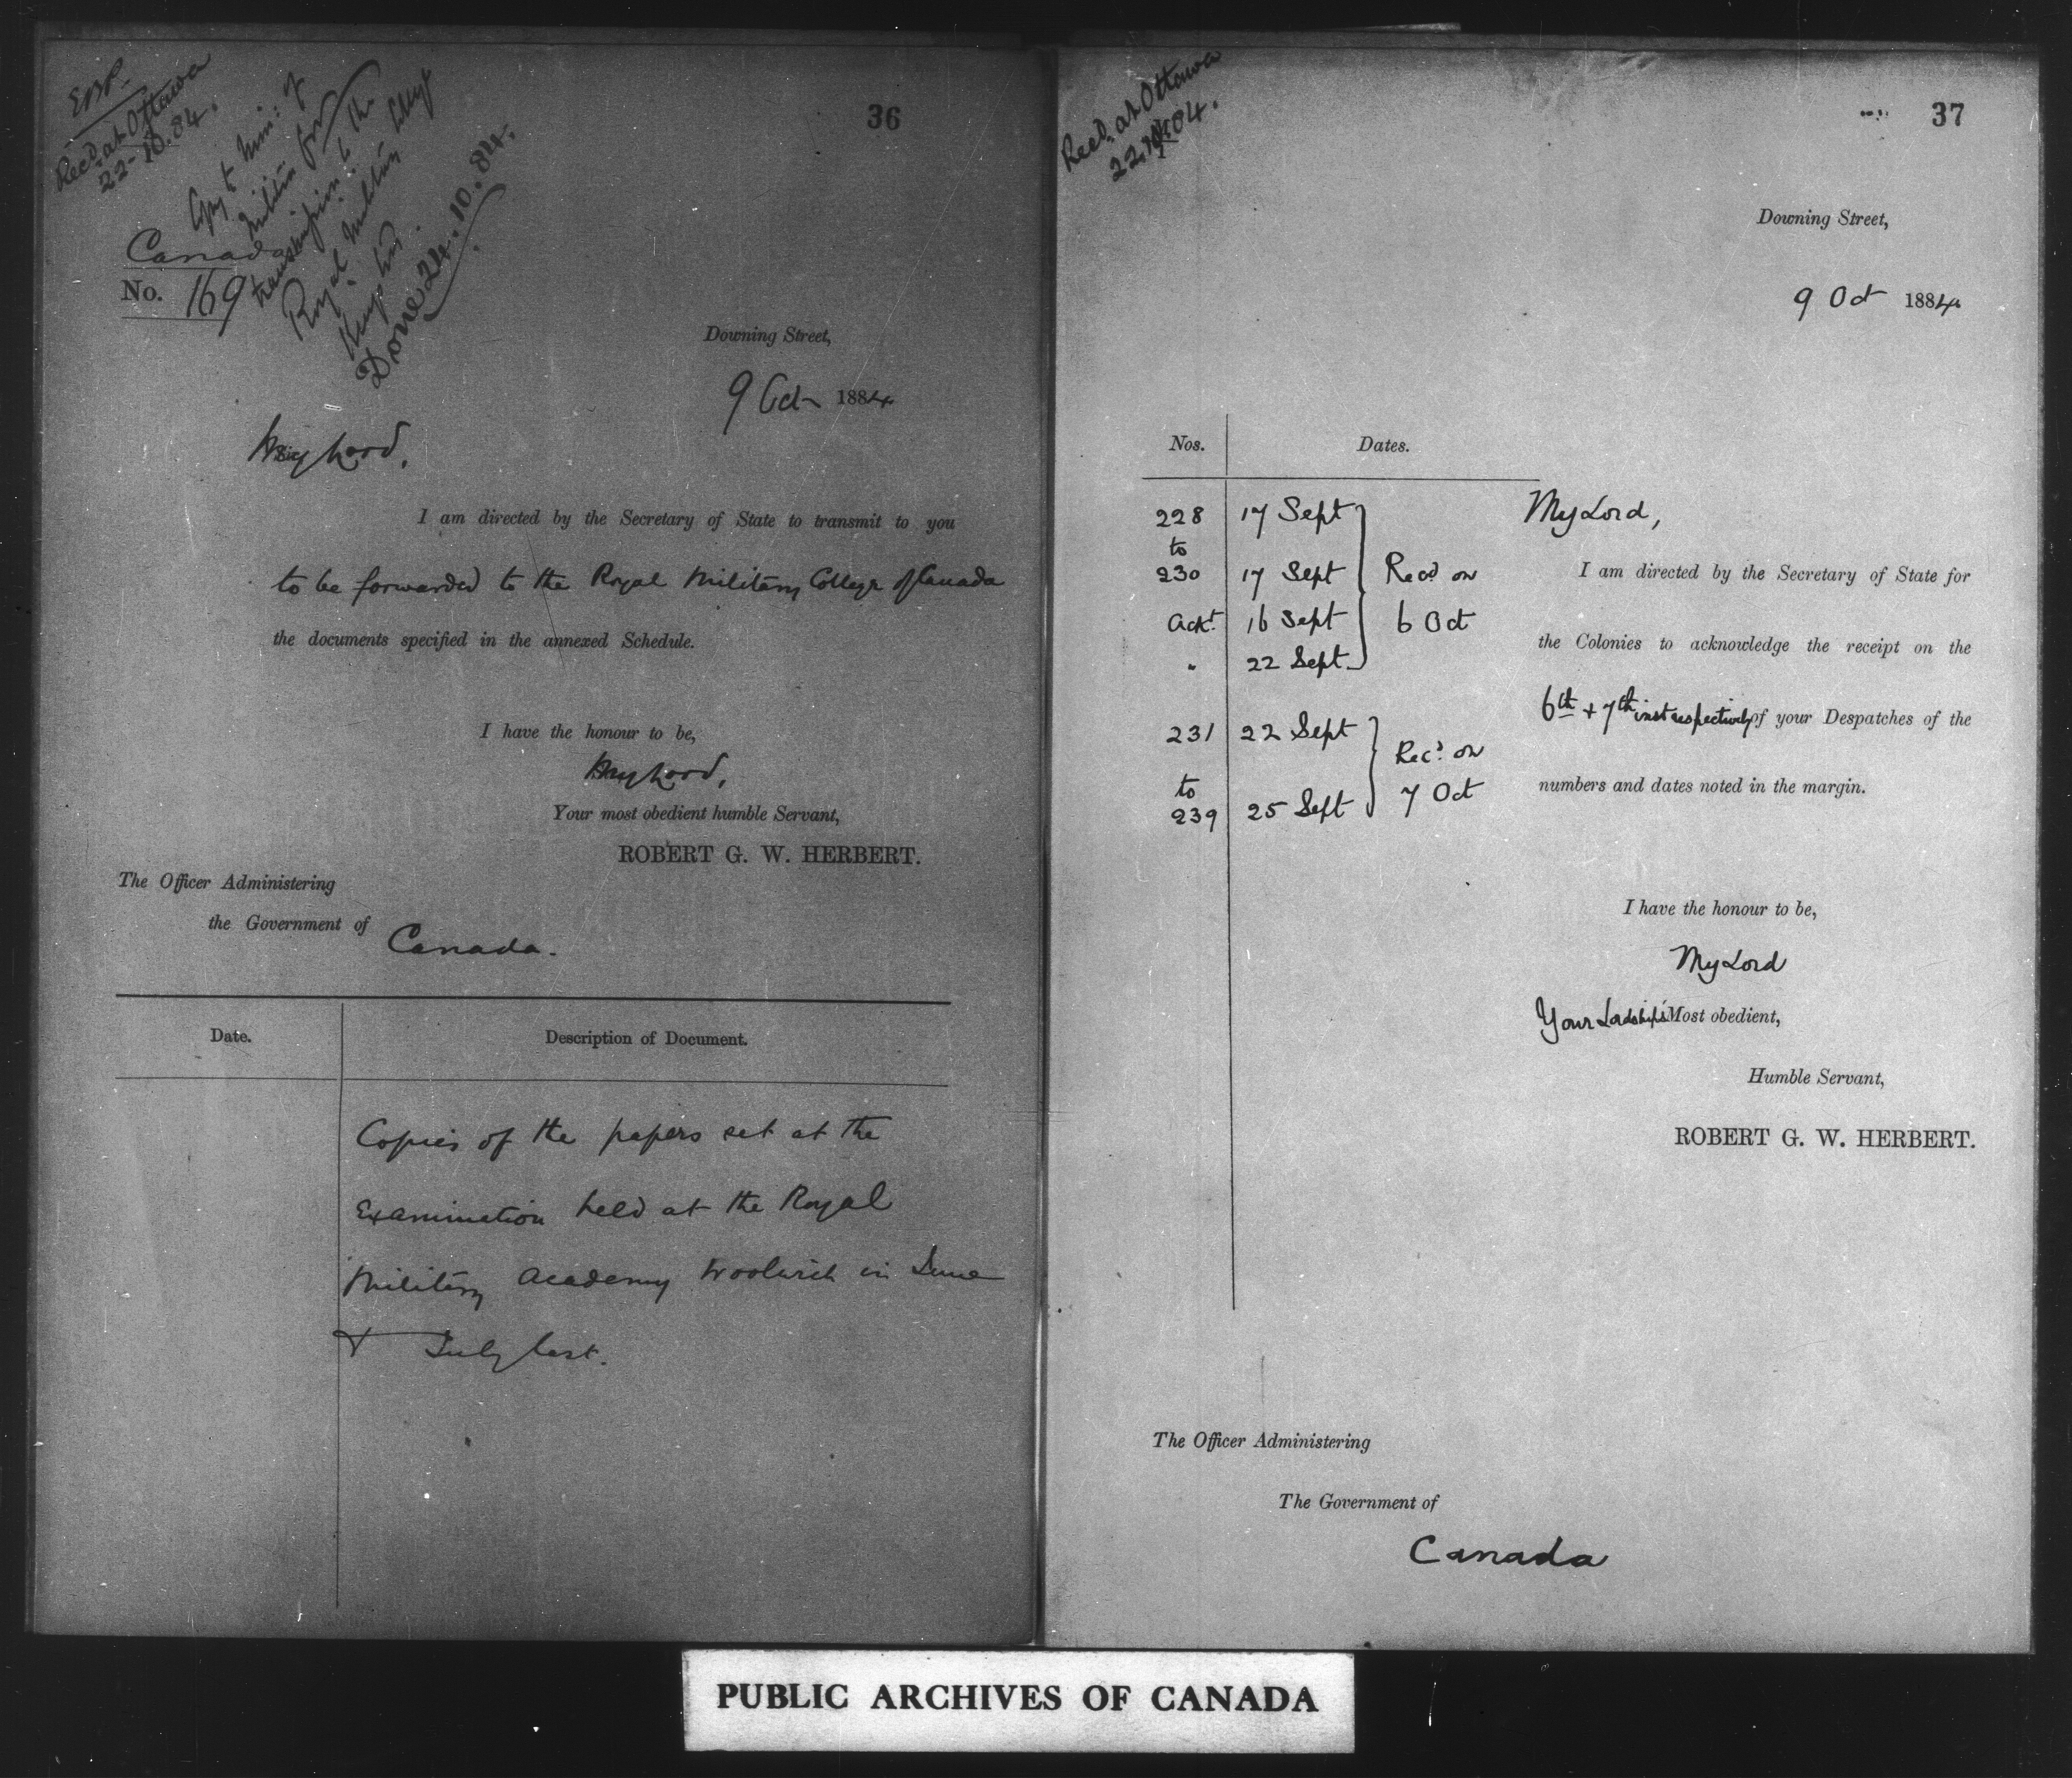 36
Recd. at Ottawa
22-10.84.
Copy to Min: of
Militia for
transmission to the
Royal Military College
Kingston.
Done 24.10.84.
Canada
No. 169
Downing Street,
9 Oct 1884
My Lord,
I am directed by the Secretary of State to transmit to you
to be forwarded to the Royal Military College of Canada
the documents specified in the annexed Schedule.
I have the honour to be,
My Lord,
Your most obedient humble Servant,
ROBERT G. W. HERBERT.
The Officer Administering
the Government of
Canada.
Date. Description of Document.
Copies of the papers set at the
Examination held at the Royal
Military Academy Woolwich in June
& July last.
37
Recd. at Ottawa
Downing Street,
9 Oct 1884
Nos. Dates.
228 17 Sept
to
230 17 Sept Recd on
Ackt. 16 Sept 6 Oct
" 22 Sept
231 22 Sept Recd. on
to
239 25 Sept 7 Oct
My Lord,
I am directed by the Secretary of State for
the Colonies to acknowledge the receipt on the
6th + 7th inst respectively of your Despatches of the
numbers and dates noted in the margin.
I have the honour to be,
My Lord
Your Lordship's Most obedient,
Humble Servant,
ROBERT G. W. HERBERT.
The Officer Administering
The Government of
Canada
PUBLIC ARCHIVES OF CANADA